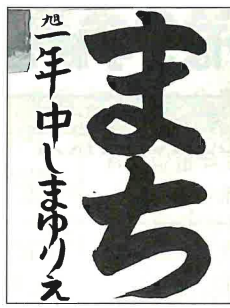 まち
旭一年中しまゆりえ